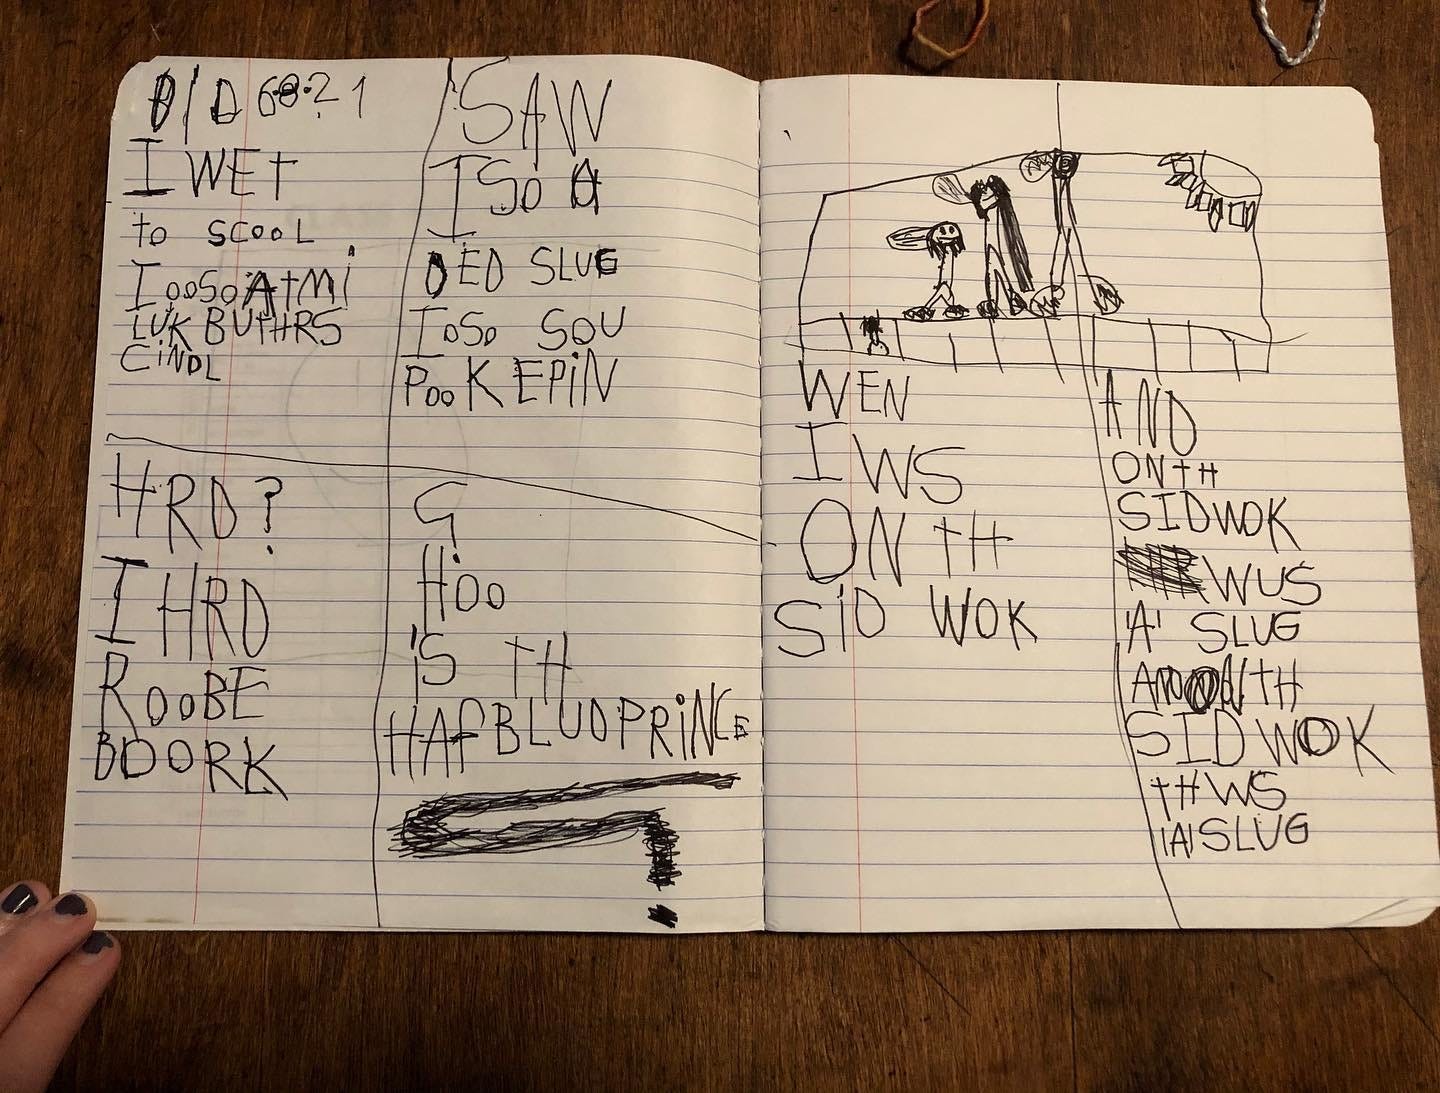 D/D 6.8.21
I WEt
to SCOOL
I ooSo AtMi
LUK BUtHRS
CiNDL
SAW
I So A
DED SLUG
I oSo SOU
Poo KEPiN
HRD?
I HRD
RooBE
BOORK
Q
Hoo
iS tH
HAf BLUD PRiNCE
?
WEN
I WS
ON tH
SiD WOK
AND
ON tH
SIDWOK
WUS
'A' SLUG
AND ON tH
SID WOK
tH WS
|A| SLUG